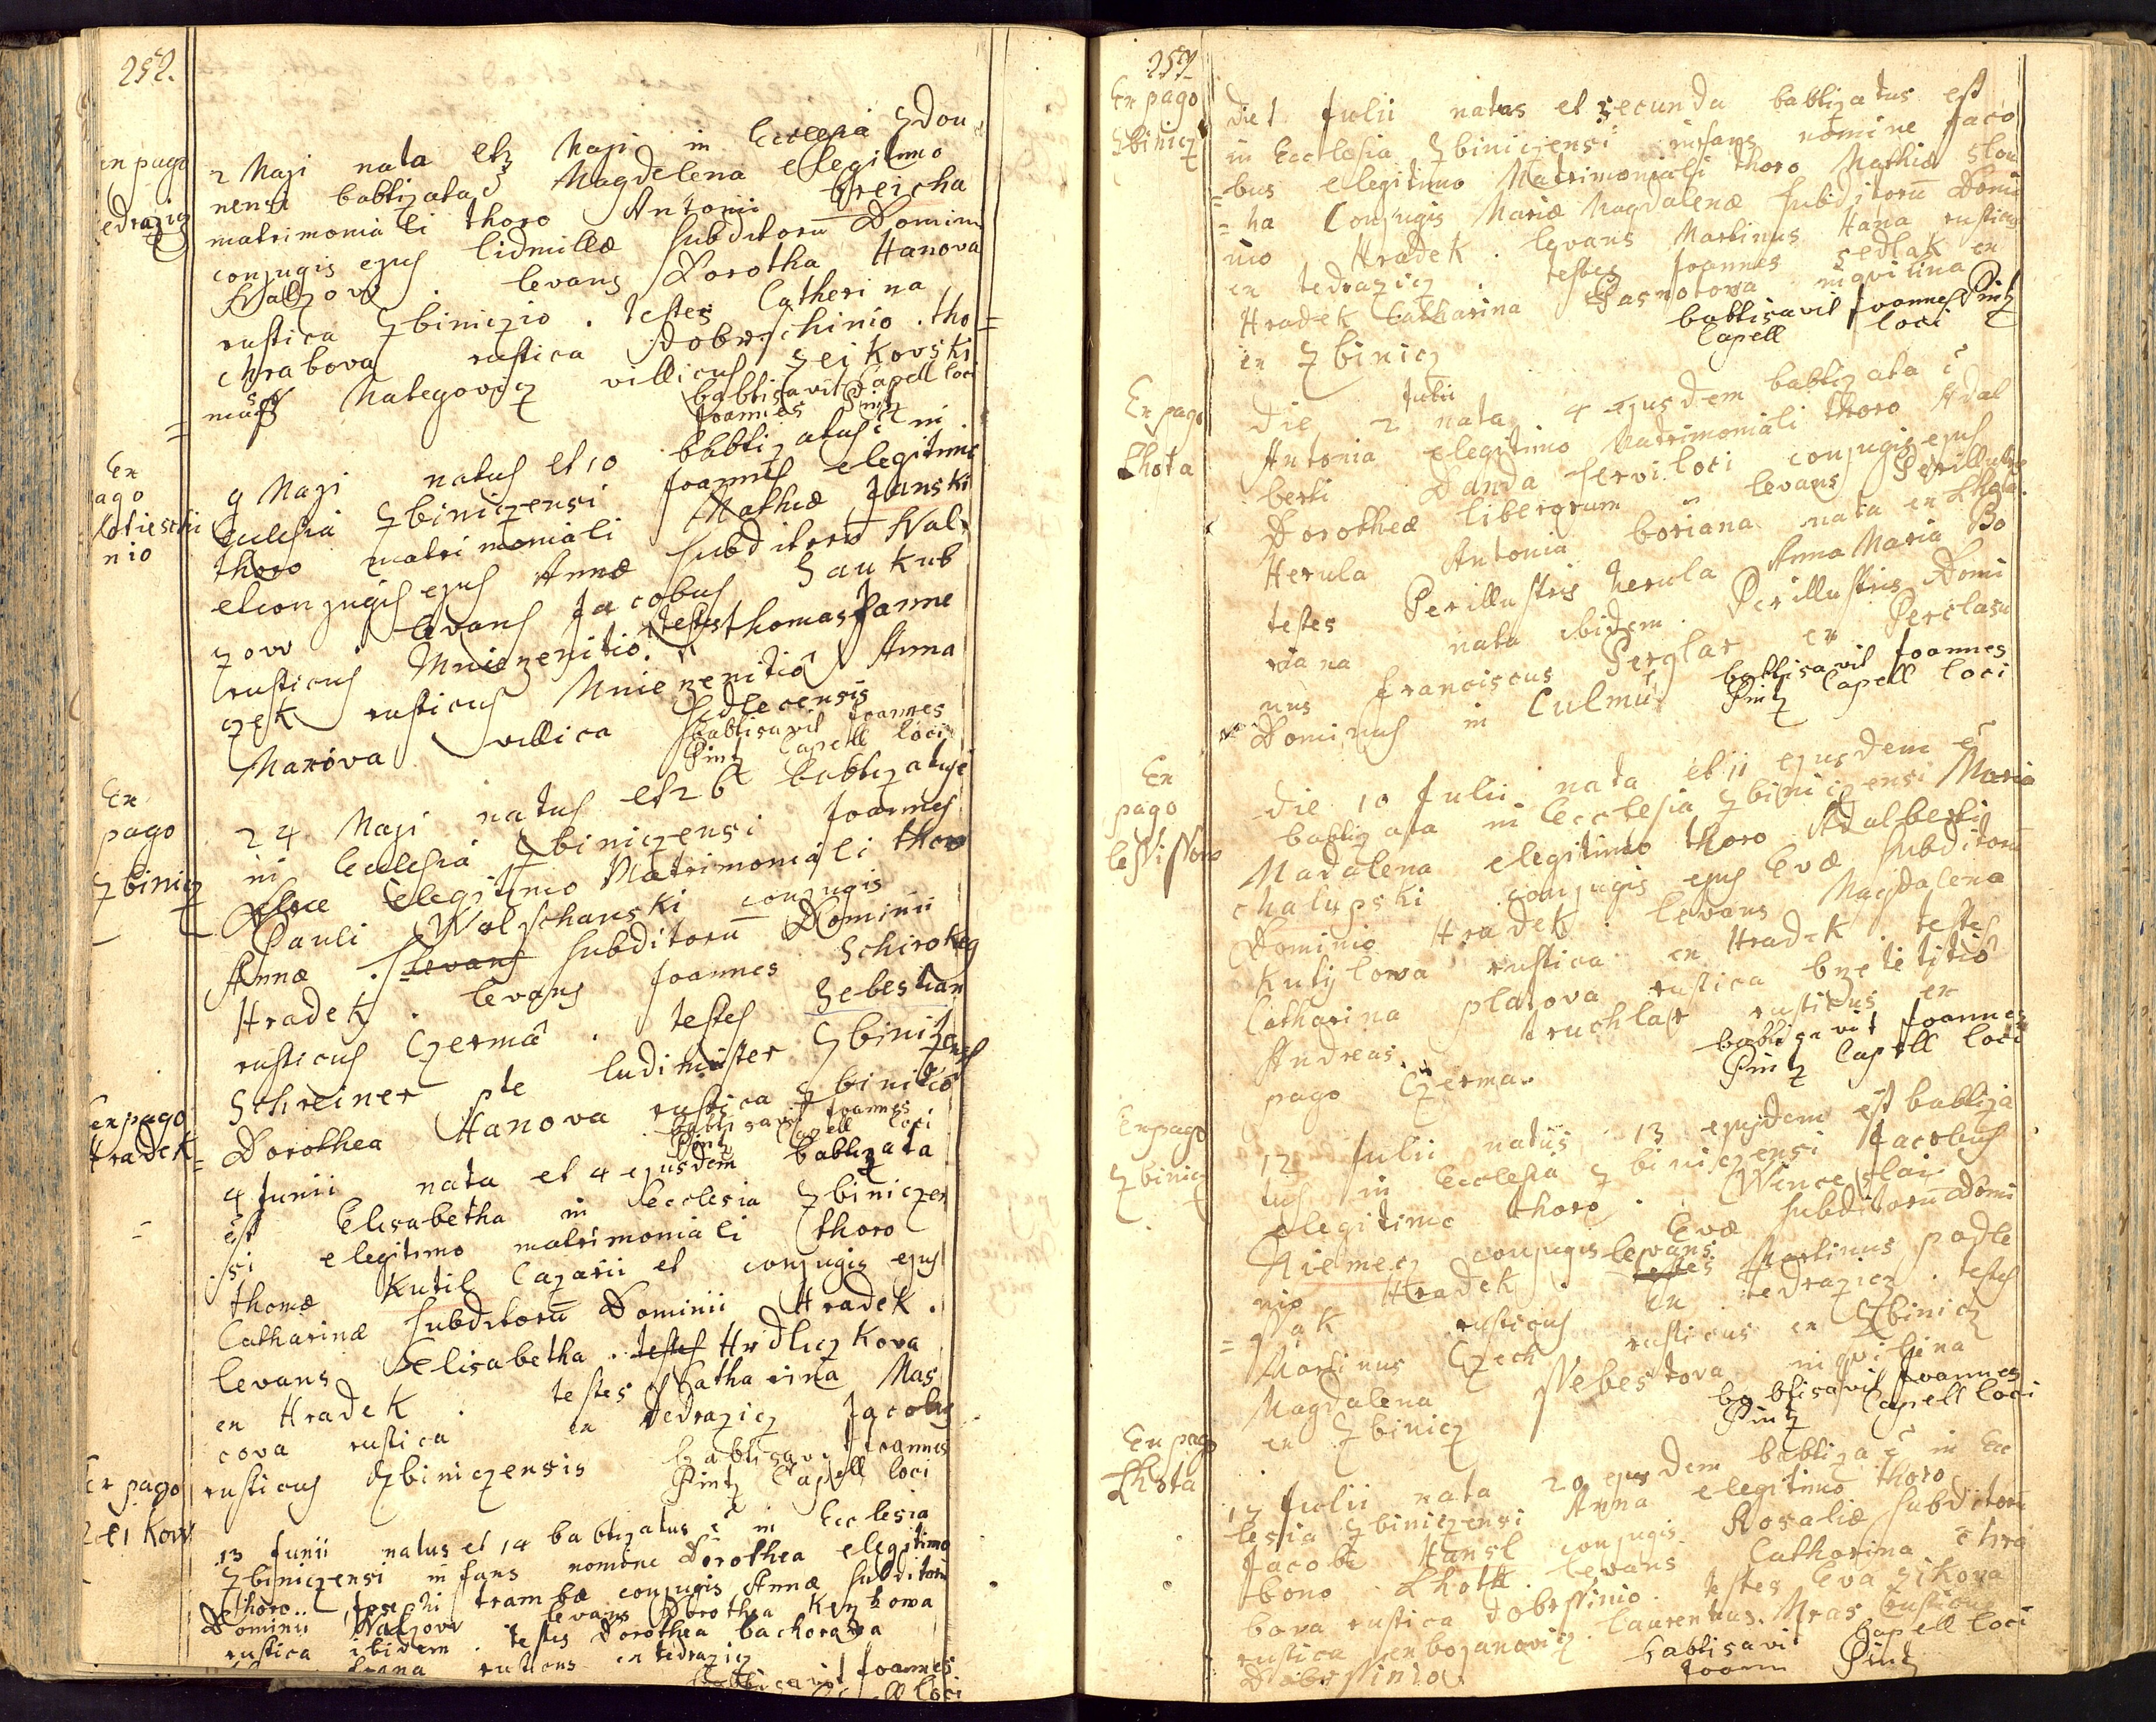 252.
en pago
edrazicz
2 Maji nata et 3 Maji in Ecclesia Zdou
nensi babtizata ẽ Magdelena e legitimo
matrimoniali thoro Antonii Breicha
conjugis ejus lidmillæ subditorũ Domini
Walzovv . levans Dorotha Hanova
rustica Zbiniczio . testes Catherina
Chrabova rustica Dobrzchinio . tho=
=mass Mategovicz villicus Zeikovski
babtisavit Capell loci
Joannes Pintz
Ex
ago
nio
9 Maji natus et 10 babtizatus ẽ in
Ecclesia Zbiniczensi Joannes e legitimo
thoro matrimoniali Mathiæ Janski
et conjugis ejus Annæ subditorũ Wal
zovv . levans Jacobus Saukub
rusticus Mniezenitio . testes thomas Janne
czek rusticus Mniezenitio Anna
Marova villica Sedlecensis
babtisavit Joannes
Pintz Capell loci
Ex
pago
Zbinicz
24 Maji natus et 26 babtizatus ẽ
in Ecclesia Zbiniczensi Joannes
e legitimo Matrimoniali thoro
Pauli Wolschanski conjugis
Annæ . levans subditorũ Dominii
Hradek . levans Joannes Schirokeg
rusticus Czerma . testes Sebestian
Schreiner pte ludimister Zbinitzens
Dorothea Hanova rustica Zbinitio
babtisavit Joannes
Pintz Capell loci
ex pago
Hradek
4 Junii nata et 4 ejusdem babtizata
est Elisabetha in Ecclesia Zbiniczen
si e legitimo matrimoniali thoro
thomæ Kutil Cazarii et conjugis ejus
Catharinæ subditorũ Dominii Hradek .
levans Elisabetha . testes Hrdliczkova
en Hradek . testes Catharina Mas
cova rustica en tedrazicz Jacobus
rusticus Zbiniczensis babtisavit Joannes
Pintz Capell loci
Ex pago
Zeikow
13 Junii natus et 14 babtizatus ẽ in Ecclesia
Zbiniczensi infans nomine Dorothea e legitimo
thoro .. Josephi trambæ conjugis Annæ subditorũ
Dominii Walzovv levans Dorothea
rustica ibidem . testes Dorothea bachorava
rusticus en tedrazicz
babtisavit Joannes
Capell loci
Ex pago
Zbinicz
die 1 Julii natus et secunda babtizatus est
in Ecclesia Zbiniczensi infans nomine Jaco
=bus e legitimo Matrimoniali thoro Mathiæ Slou
=ha Conjugis Mariæ Magdalenæ subditorũ Domi
nio Hradek . levans Martinus Hana rusticus
en tedrazicz . testes Joannes Sedlak en
Hradek Catharina Pasnotowa inqvilina
en Zbinicz
babtisavit Joannes Pintz
Capell loci
Ex pago
Lhota
Julii
Die 2 nata 4 ejusdem babtizata ẽ
Antonia e legitimo Matrimoniali thoro Adal
berti Danda servi loci conjugis ejus
Dorotheæ liberorum levans Perillustris
Herula Antonia boriana nata en Lhota
testes Perillustris herula Anna Maria Bo
riana nata ibidem . Perillustris Domi
nus franciscus Perglar en Perclasu
Dominus in Culmu
babtisavit Joannes
Pintz Capell loci
Ex
pago
die 10 Julii nata et 11 ejusdem ẽ
babtizata in Ecclesia Zbiniczensi Maria
Madalena e legitimo thoro Adalberti
chalupski conjugis ejus Evæ subditorũ
Dominio Hradek . levans Magdalena
Kutylowa rustica en Hradek . testes
Catharina platova rustica bzetetitio
Andreas truchlar rusticus en
pago Czerma .
babtizavit Joannes
Pintz Capell loci
Ex pago
Zbinicz
12 Julii natus 13 ejusdem est babtiza
tus in Ecclesia Zbiniczensi Jacobus
e legitimo thoro . Winceslai
Niemecz conjugis Evæ subditorũ Domi
nio Hradek . levans testes Martinus podle
=ssak rusticus en tedrazicz . testes
Martinus Czech rusticus en Zbinicz
Magdalena Ssebestova inqvilina
en Zbinicz
babtisavit Joannes
Pintz Capell loci
Ex pago
Lhota
17 Julii nata 20 ejusdem babtiza ẽ in Ec
lesia Zbiniczensi Anna e legitimo thoro
Jacobi Hansl conjugis Rosaliæ subditorũ
bono Lhotta . levans Catharina Chra
bova rustica Dobrssinio . testes Eva zikova
rustica en bojanovicz . laurentius Mras rusticus
Dobrssinio
babtisavi Capell loci
Joann Pintz